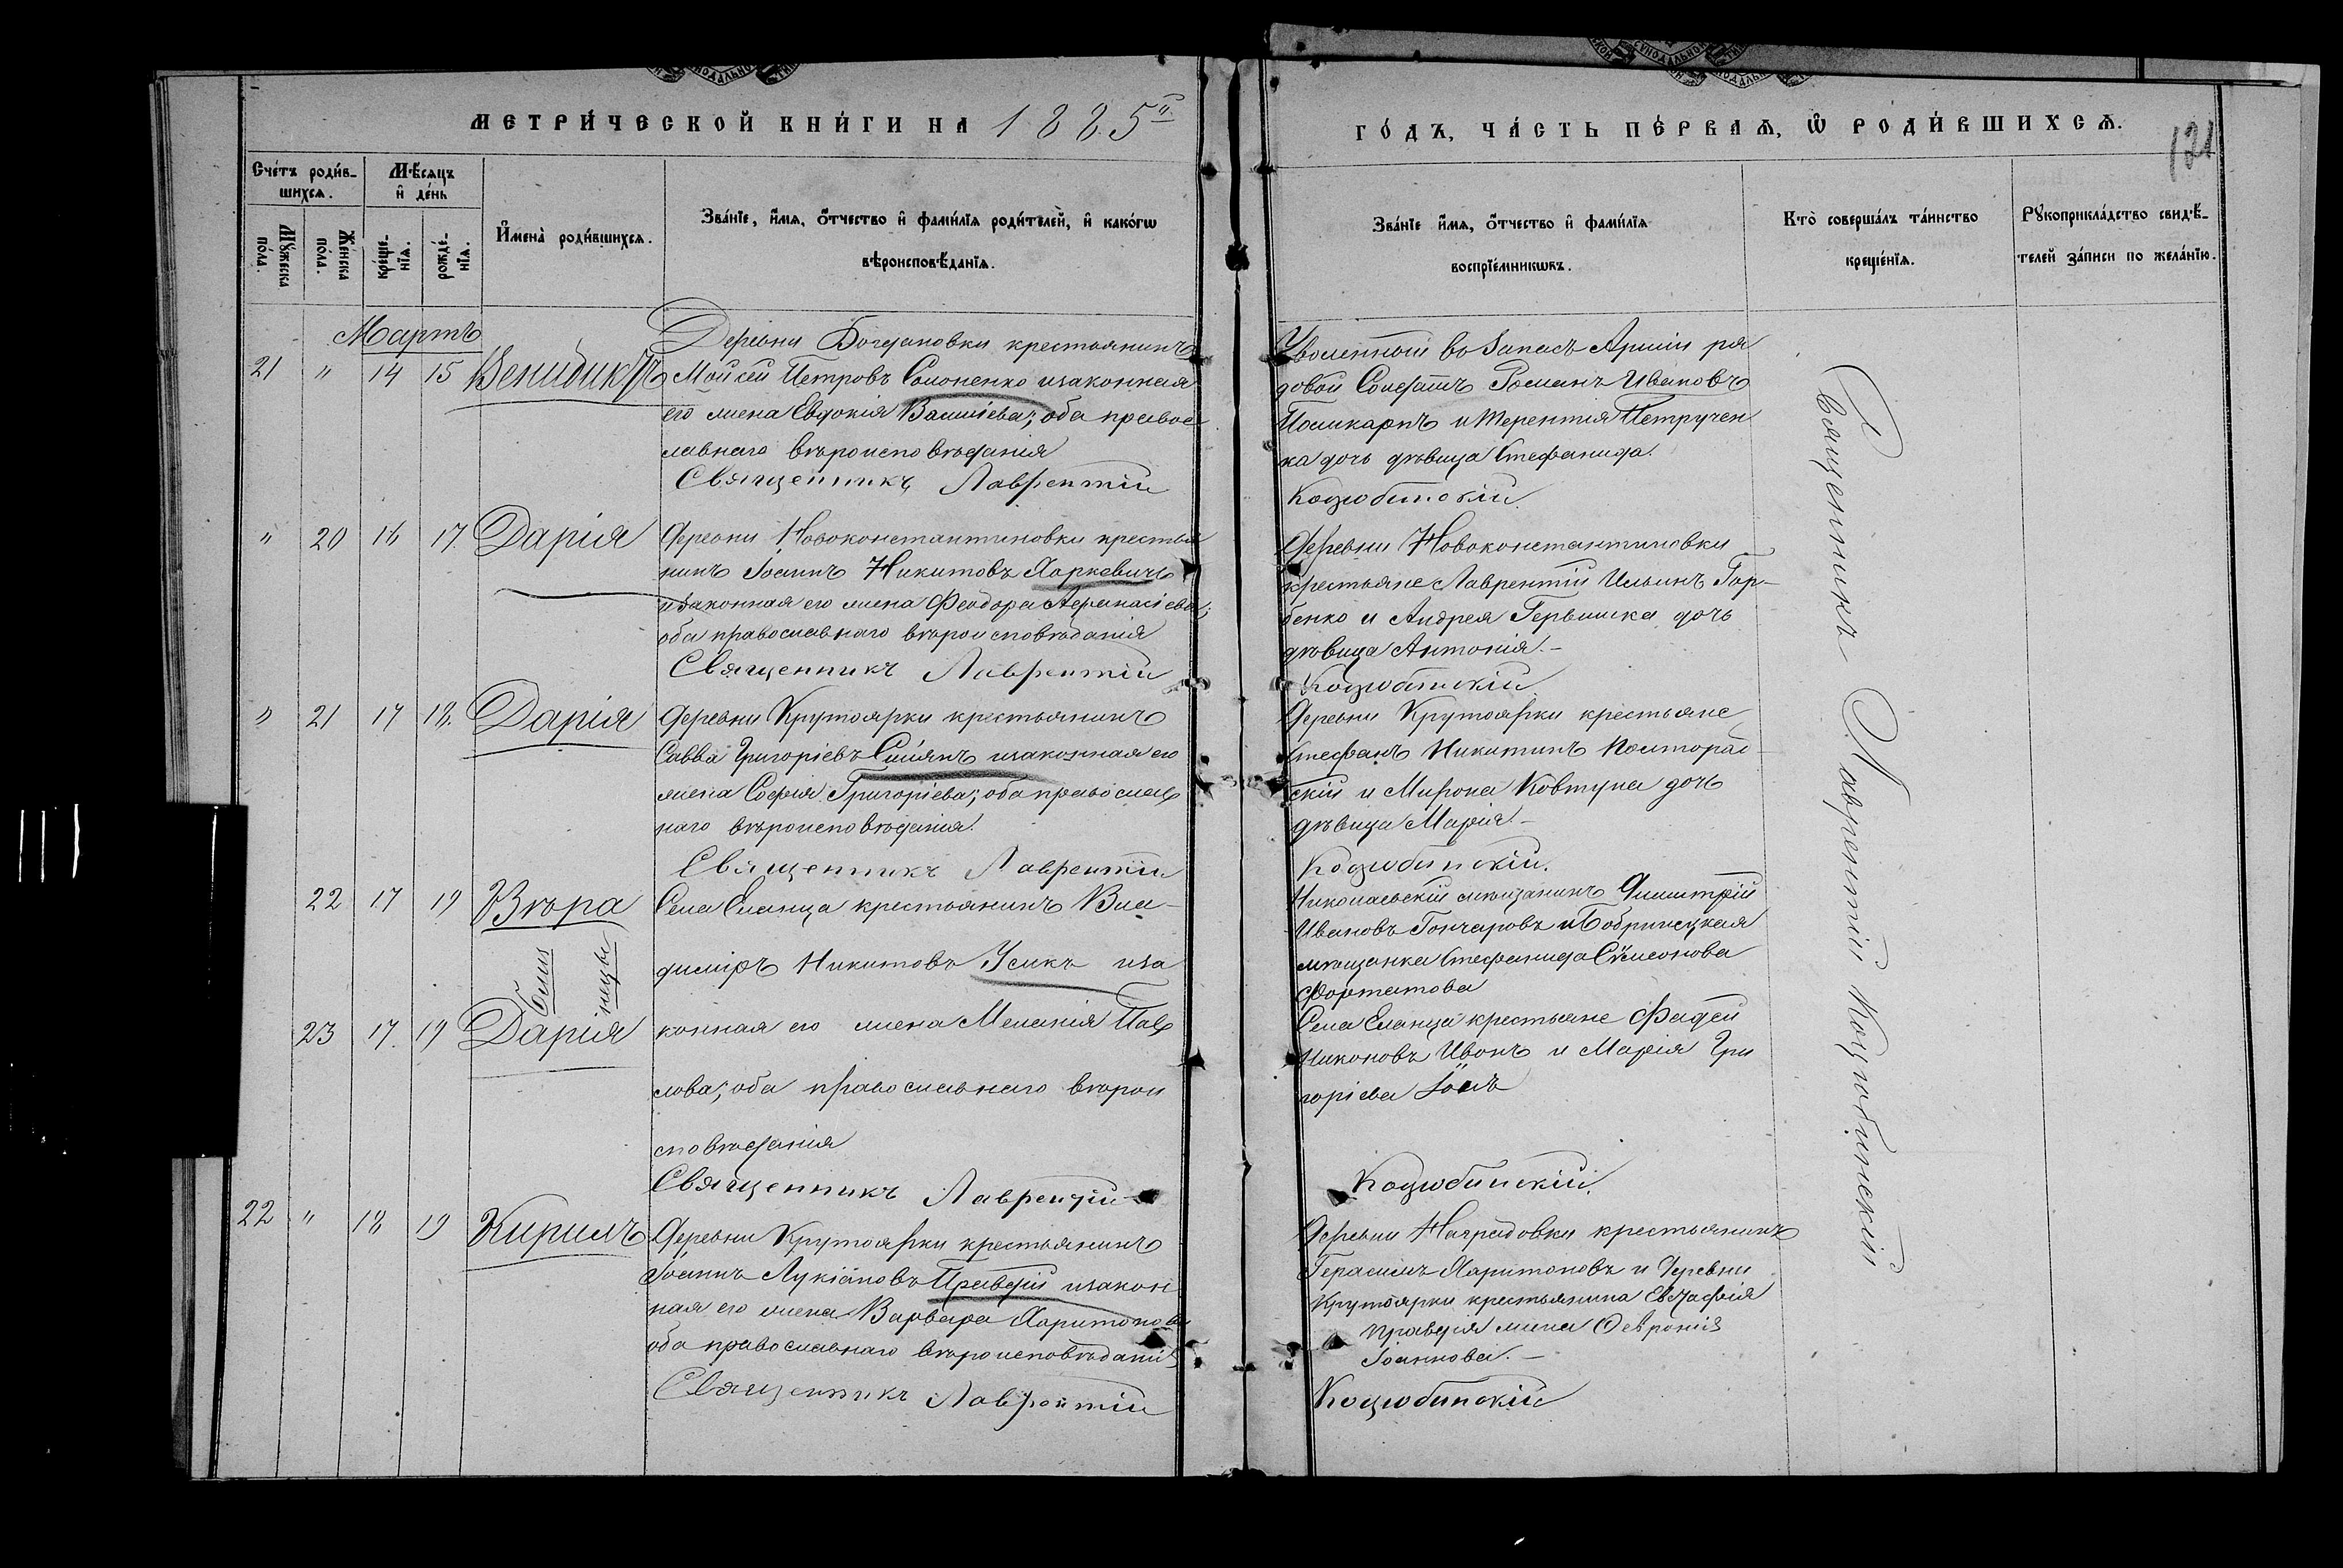 МЕТРИ́ЧЕСКОЙ КНИ́ГИ НА 1885й
Счéтъ роди́в-
шихсѧ.
Мꙋ́жеска
по́ла.
Же́нска
по́ла.
Мѣ́сѧцъ
и҆ де́нь
креще́-
нїѧ.
рожде́-
нїѧ.
И҆мена̀ роди́вшихсѧ.
Зва́нїе, и҆́мѧ, ѻ҆́тчество и҆ фами́лїѧ роди́телей, и҆ како́гѡ
вѣроисповѣ́данїѧ.
Мартъ
21 " 14 15 Венидиктъ
Деревни Богдановки крестьянинъ
Моисей Петровъ Соломенко и законная
его жена Евдокія Васильева; оба правос
лавнаго вѣроисповѣданія
Священникъ Лаврентій
" 20 16 17. Дарія
Деревни Новоконстантиновки крестья
нинъ Іоаннъ Никитовъ Харкевичъ
и законная его жена Феодора Афанасіева;
оба православнаго вѣроисповѣданія
Священникъ Лаврентій
" 21 17 18. Дарія
Деревни Крутоярки крестьянинъ
Савва Григоріевъ и законная его
жена Софія Григоріева; оба православ
наго вѣроисповѣданія.
Священникъ Лаврентій
22 17 19 Вѣра
близ
нецы
23 17. 19 Дарія
Села Еланца крестьянинъ Вла-
димиръ Никитовъ Усикъ и за
конная его жена Меланія Пав
лова; оба православнаго вѣрои
сповѣданія
Священникъ Лаврентій
22 " 18 19 Кирилъ
Деревни Крутоярки крестьянинъ
Іоаннъ Лукіановъ Праведій и закон
ная его жена Варвара Харитонова
оба православнаго вѣроисповѣданія
Священникъ Лаврентій
ГО́ДЪ, ЧА́СТЬ ПЕ́РВАѦ, Ѡ҆ РОДИ́ВШИХСѦ.
121
Зва́нїе и҆́мѧ, ѻ҆́тчество и҆ фами́лїѧ
воспрїе́мникѡвъ.
Кто̀ соверша́лъ та́инство
креще́нїѧ.
Рꙋкоприкла́дство свидѣ́-
телей за́писи по жела́нїю.
Уволенный въ Запасъ Арміи ря
довой Романъ Ивановъ
Поликарпъ и Терентія Петручен
ка дочь дѣвица Стефанида.
Коцюбинскій
Деревни Новоконстантиновки
крестьяне Лаврентій Ильинъ Гор-
бенко и Андрея дочь
дѣвица Антонія.-
Коцюбинскій
Деревни Крутоярки крестьяне
Стефанъ Никитинъ Полторац-
скій и Мирона Ковтуна дочь
дѣвица Марія.-
Коцюбинскій.
Николаевскій мѣщанинъ Димитрій
Ивановъ Гончаровъ и Бобринецкая
мѣщанка Стефанида Симеонова
Села Еланца крестьяне Фадей
Никоновъ Ивонъ и Марія Гри
горіева
Коцюбинскій
Деревни крестьянинъ
Герасимъ Харитоновъ и Деревни
Крутоярки крестьянина Евстафія
Праведія жена Февронія
Іоаннова.-
Коцюбинскій
Священникъ Лаврентій Коцюбинскій